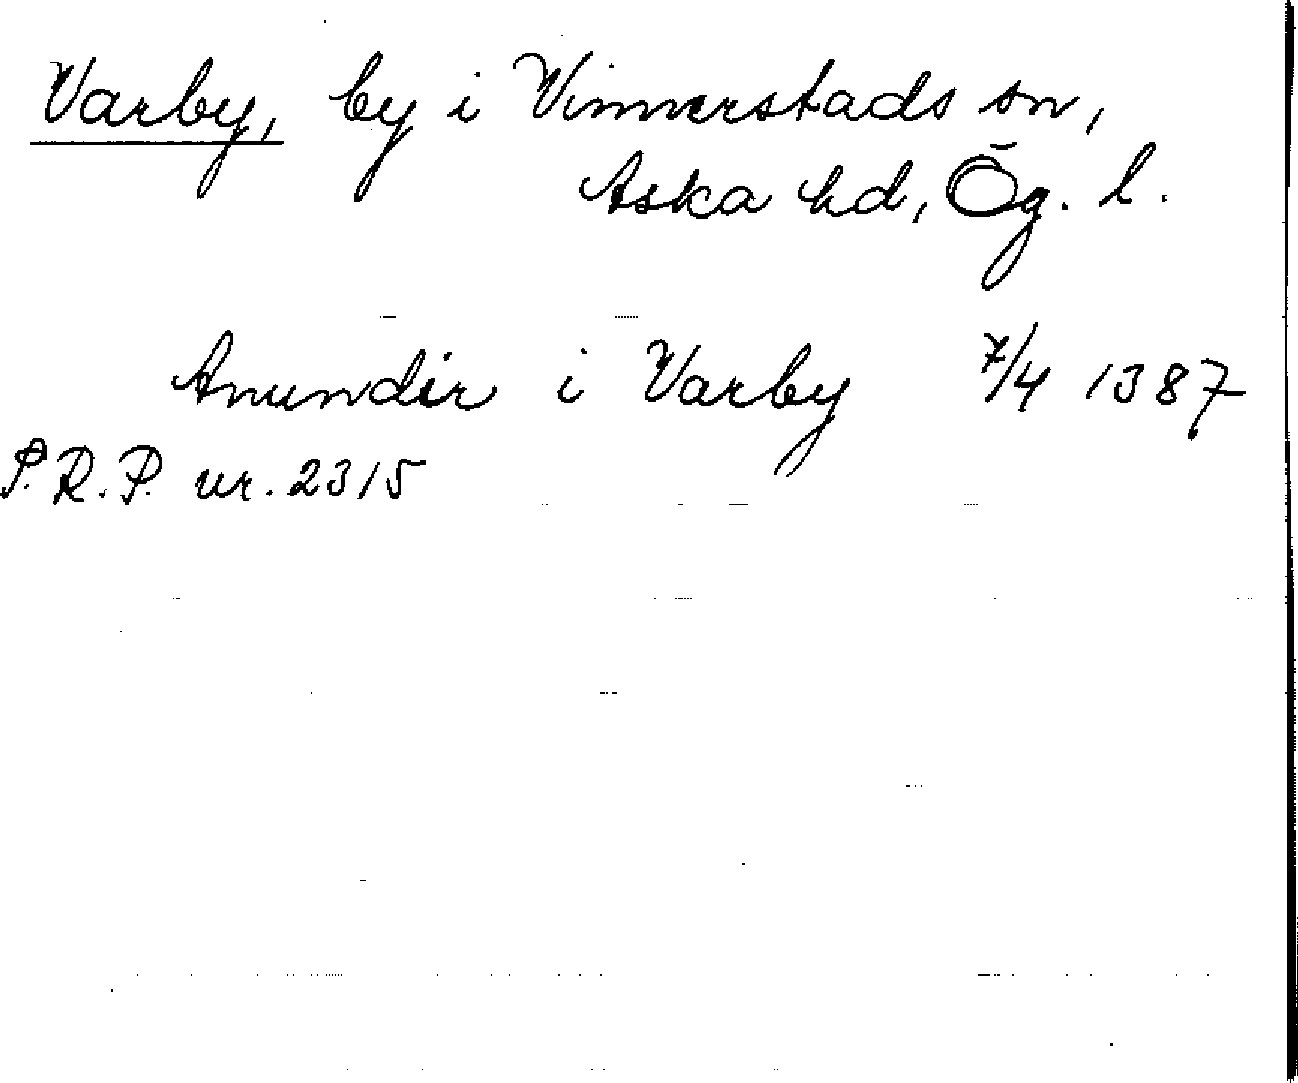 Varby, by i Vinnerstads sn,
Aska hd, Ög. l.
Anundir i Varby 7/4 1387
P.R.P. nr. 2315